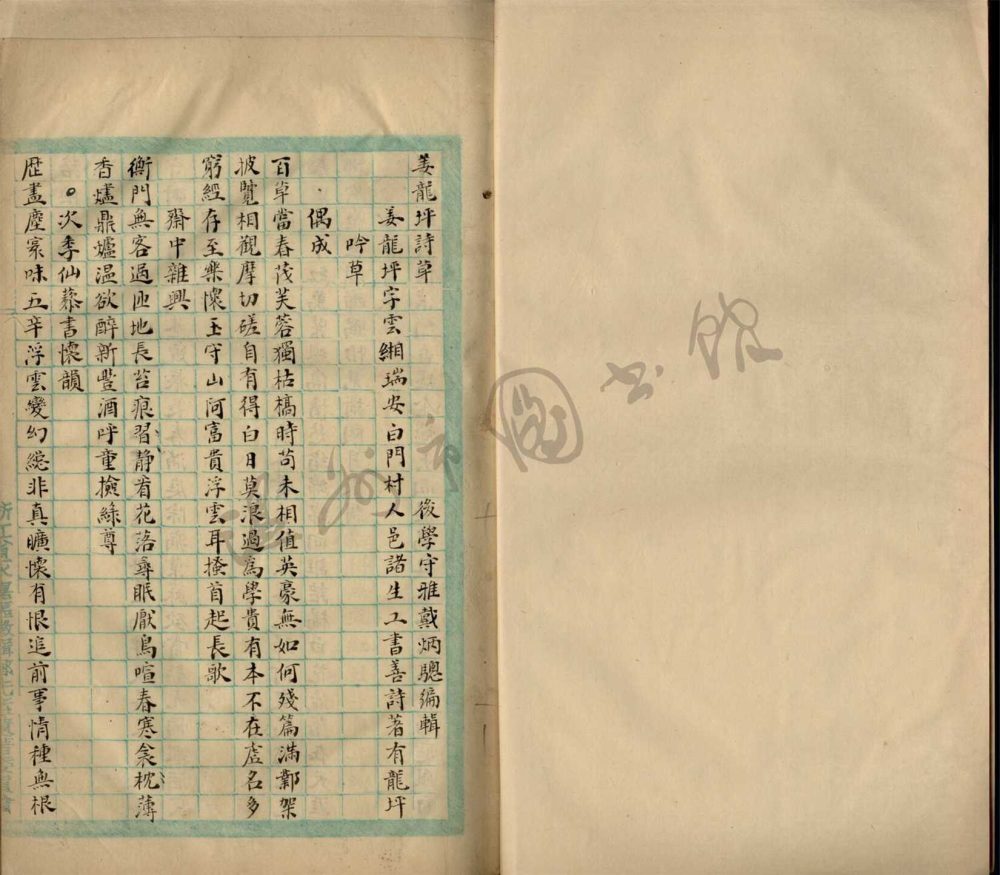 姜龍坪詩草
後學守雅戴炳驄編輯
姜龍坪字雲緗瑞安白門村人邑諸生工書善詩著有龍坪
吟草
偶成
百草當春茂芙蓉獨枯槁時苟未相值英豪無如何殘篇滿鄴架
披覽相觀摩切磋自有得白日莫浪過為學貴有本不在虛名多
窮經存至樂懷玉守山河富貴浮雲耳搔首起長歌
齋中雜興
衡門無客過匝地長苔痕習靜看花落尋眠厭鳥喧春寒衾枕薄
香爐鼎爐温欲醉新豐酒呼童撿綠尊
次季仙蓀書懷韻
歷盡塵寰味五辛浮雲變幻總非真曠懷有恨追前事情種無根
圖書館